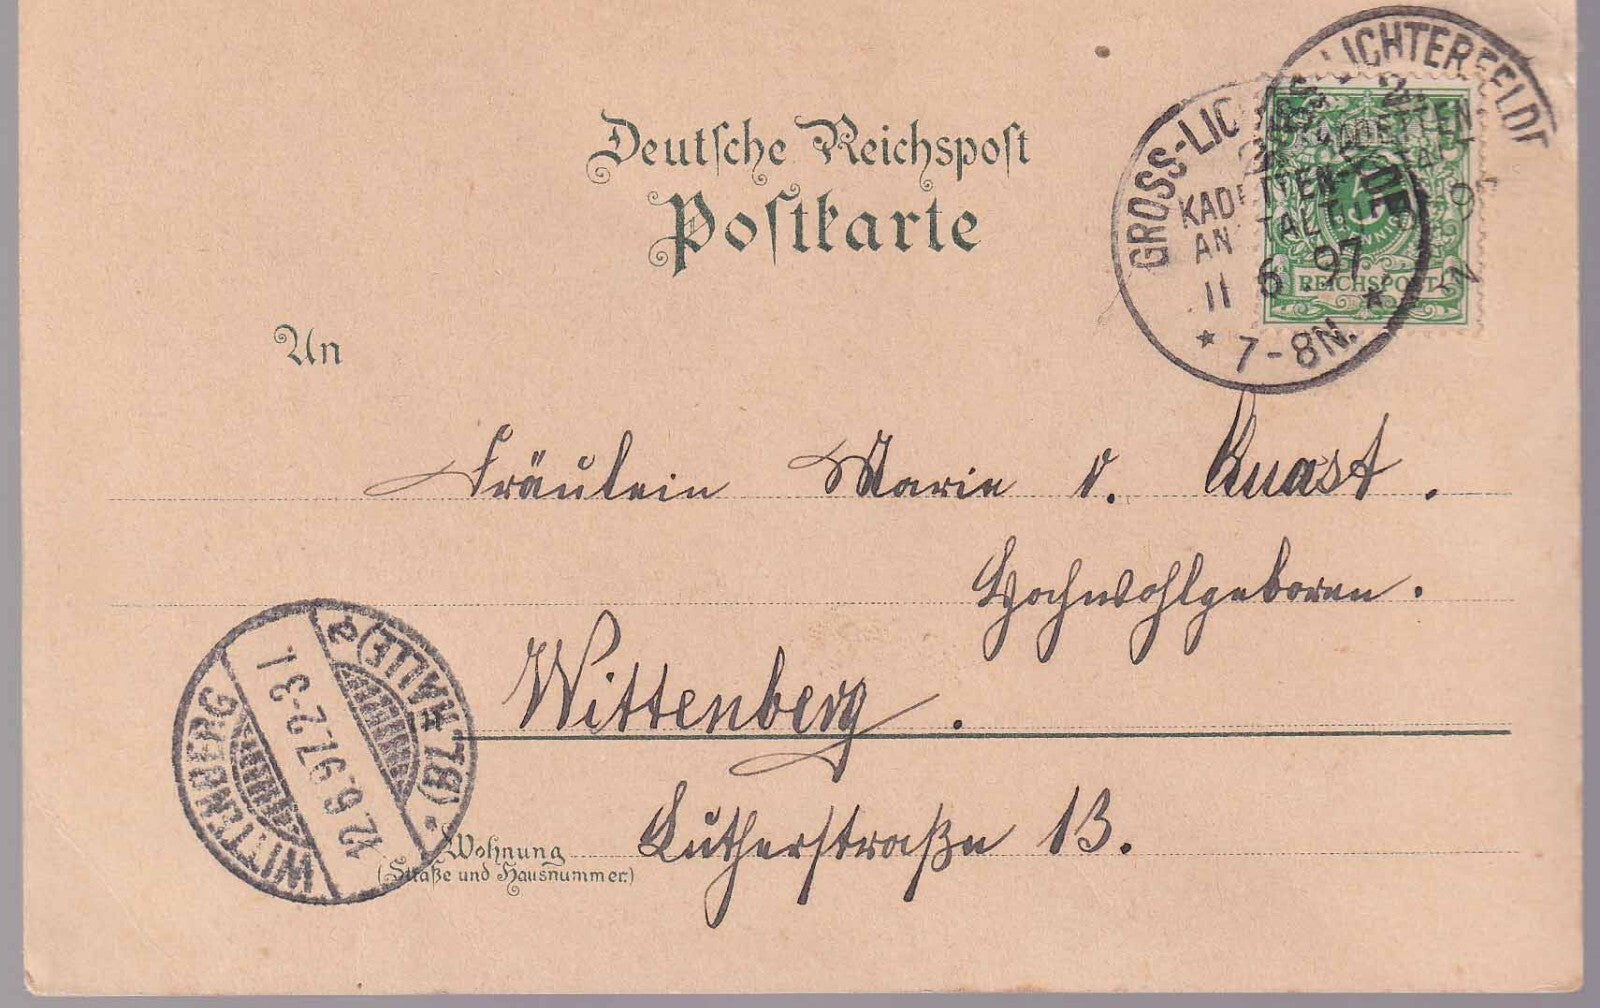 Deutsche Reichspost
Postkarte
GROSS-LICHTERFELDE
KADETTEN-
ANSTALT
11 6 97
* 7-8N. *
REICHSPOST
An
Fräulein Marie v. Quast.
Hochwohlgeboren.
Wittenberg.
Wohnung
(Straße und Hausnummer)
Lutherstraße 13.
WITTENBERG
12.6.97.2-3
(BZ. HALLE)